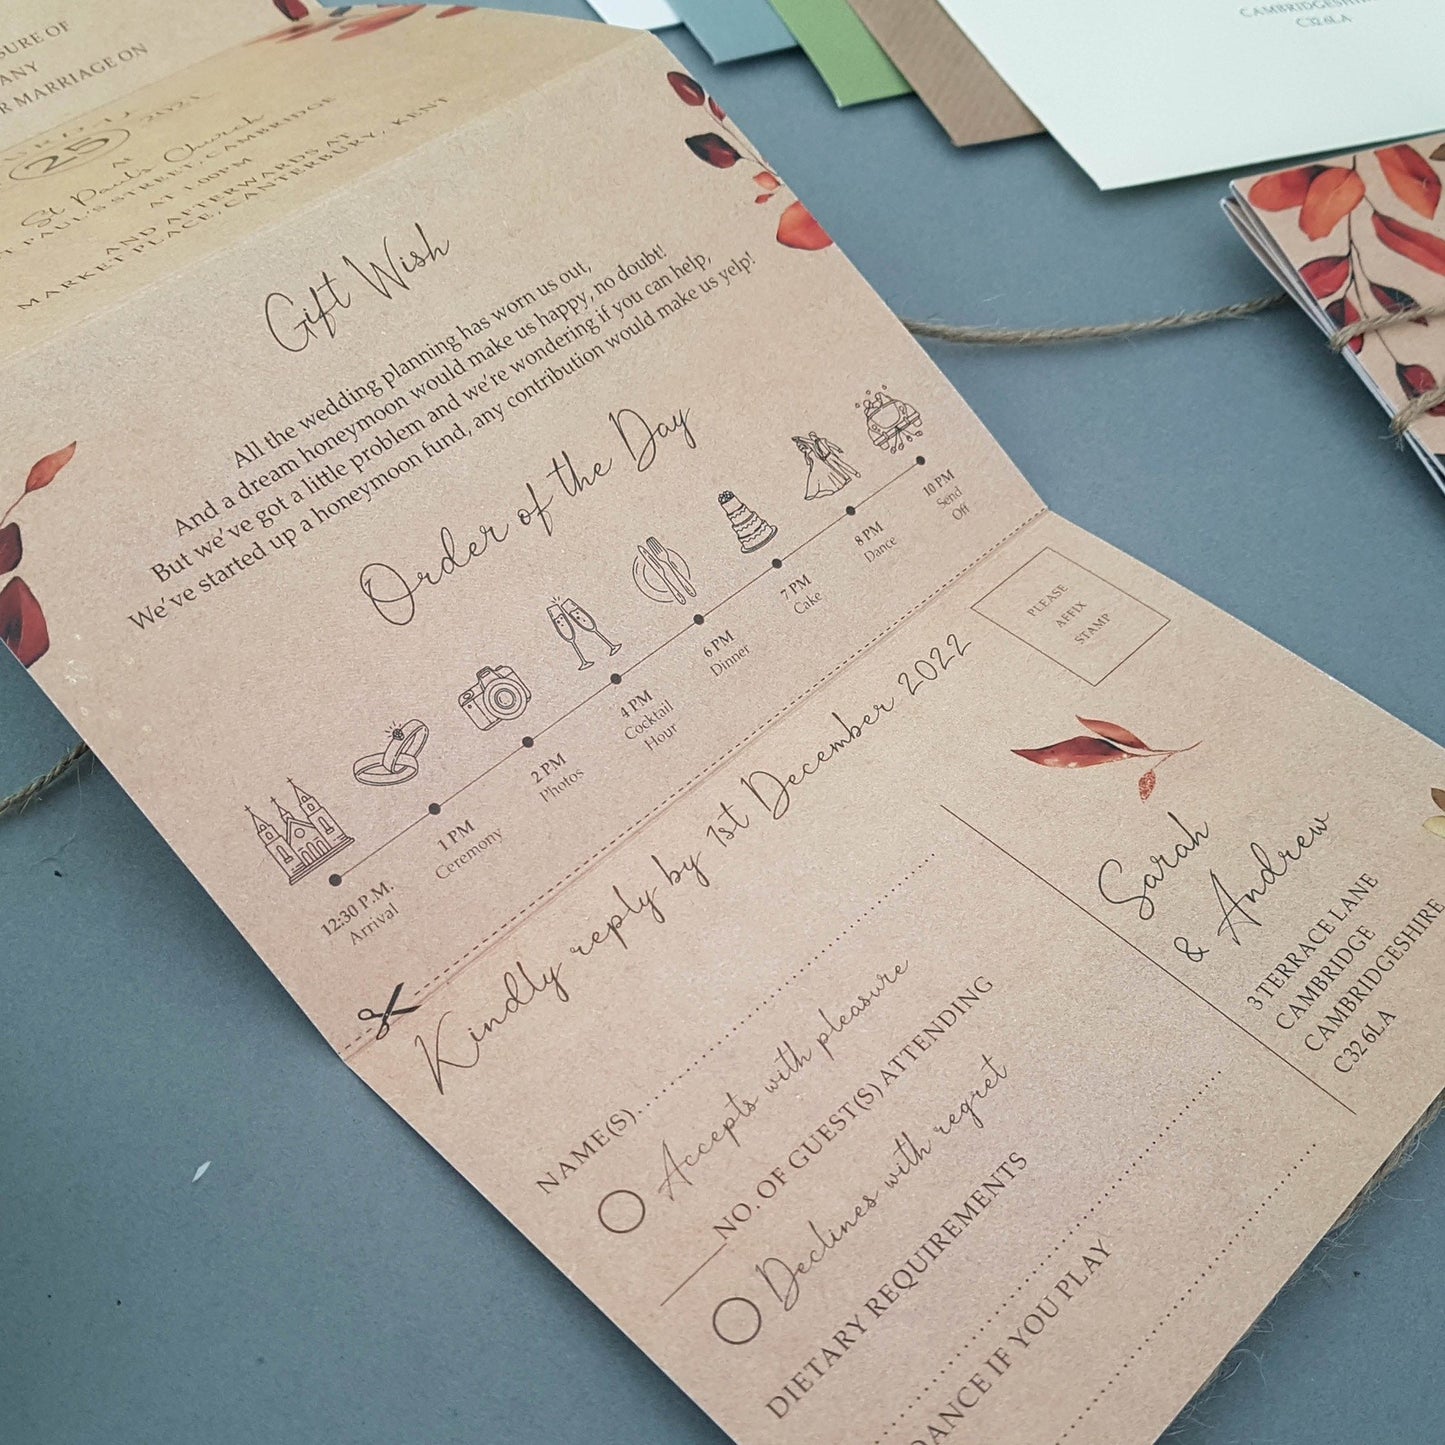 SURE OF
ANY
MARRIAGE ON
25
2021
AT
St Paul's Church
PAUL'S STREET, CAMBRIDGE
AT 1.00PM
AND AFTERWARDS AT
MARKET PLACE, CANTERBURY, KENT
Gift Wish
All the wedding planning has worn us out,
And a dream honeymoon would make us happy, no doubt!
But we've got a little problem and we're wondering if you can help,
We've started up a honeymoon fund, any contribution would make us yelp!
Order of the Day
12:30 P.M.
Arrival
1 PM
Ceremony
2 PM
Photos
4 PM
Cocktail
Hour
6 PM
Dinner
7 PM
Cake
8 PM
Dance
10 PM
Send
Off
Kindly reply by 1st December 2022
NAME(S)
Accepts with pleasure
NO. OF GUEST(S) ATTENDING
Declines with regret
DIETARY REQUIREMENTS
DANCE IF YOU PLAY
PLEASE
AFFIX
STAMP
Sarah
& Andrew
3 TERRACE LANE
CAMBRIDGE
CAMBRIDGESHIRE
C32 6LA
CAMBRIDGESHIRE
C32 6LA